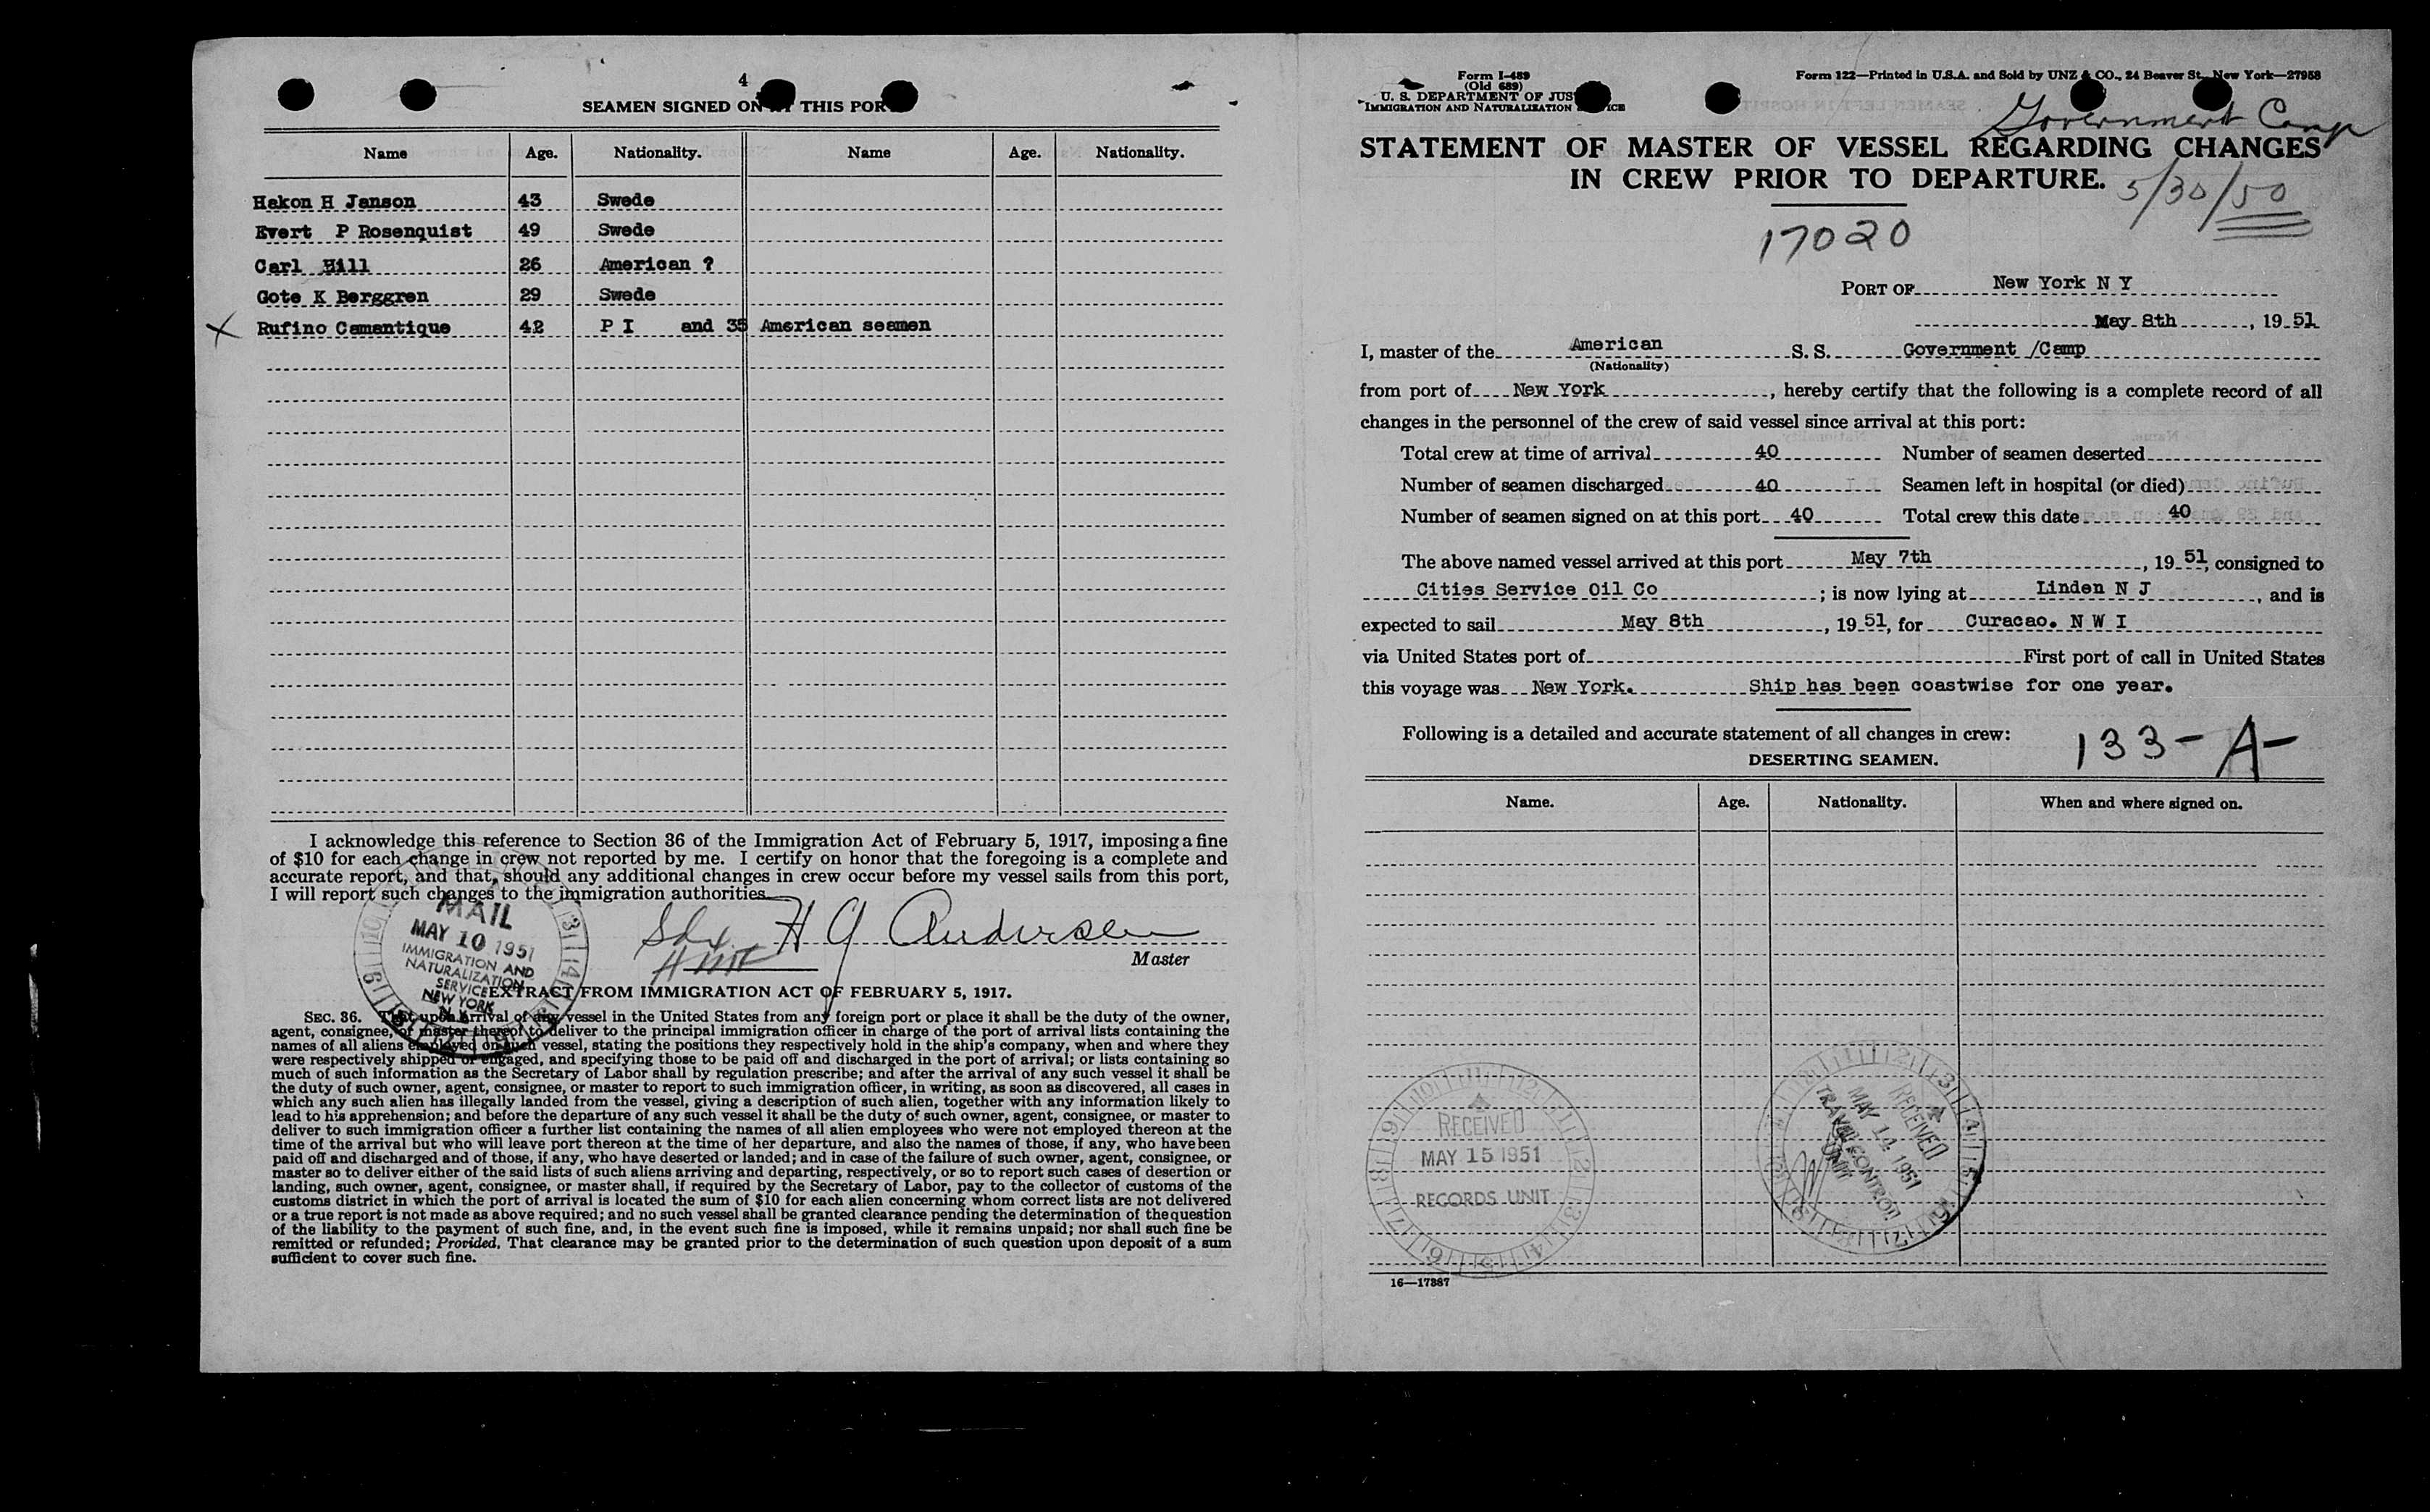 4
SEAMEN SIGNED ON THIS POR
Name Age. Nationality. Name Age. Nationality.
Hakon H Janson 43 Swede
Evert P Rosenquist 49 Swede
Carl Hill 26 American ?
Gote K Berggren 29 Swede
X Rufino Camantique 42 P I and 35 American seamen
I acknowledge this reference to Section 36 of the Immigration Act of February 5, 1917, imposing a fine
of $10 for each change in crew not reported by me. I certify on honor that the foregoing is a complete and
accurate report, and that, should any additional changes in crew occur before my vessel sails from this port,
I will report such changes to the immigration authorities.
MAIL
MAY 10 1951
IMMIGRATION AND
NATURALIZATION
SERVICE
NEW YORK
N.Y.
H G Andersen
Master
EXTRACT FROM IMMIGRATION ACT OF FEBRUARY 5, 1917.
SEC. 36. That upon arrival of any vessel in the United States from any foreign port or place it shall be the duty of the owner,
agent, consignee, or master thereof to deliver to the principal immigration officer in charge of the port of arrival lists containing the
names of all aliens employed on such vessel, stating the positions they respectively hold in the ship's company, when and where they
were respectively shipped or engaged, and specifying those to be paid off and discharged in the port of arrival; or lists containing so
much of such information as the Secretary of Labor shall by regulation prescribe; and after the arrival of any such vessel it shall be
the duty of such owner, agent, consignee, or master to report to such immigration officer, in writing, as soon as discovered, all cases in
which any such alien has illegally landed from the vessel, giving a description of such alien, together with any information likely to
lead to his apprehension; and before the departure of any such vessel it shall be the duty of such owner, agent, consignee, or master to
deliver to such immigration officer a further list containing the names of all alien employees who were not employed thereon at the
time of the arrival but who will leave port thereon at the time of her departure, and also the names of those, if any, who have been
paid off and discharged and of those, if any, who have deserted or landed; and in case of the failure of such owner, agent, consignee, or
master so to deliver either of the said lists of such aliens arriving and departing, respectively, or so to report such cases of desertion or
landing, such owner, agent, consignee, or master shall, if required by the Secretary of Labor, pay to the collector of customs of the
customs district in which the port of arrival is located the sum of $10 for each alien concerning whom correct lists are not delivered
or a true report is not made as above required; and no such vessel shall be granted clearance pending the determination of the question
of the liability to the payment of such fine, and, in the event such fine is imposed, while it remains unpaid; nor shall such fine be
remitted or refunded; Provided, That clearance may be granted prior to the determination of such question upon deposit of a sum
sufficient to cover such fine.
Form I-489
(Old 689)
U. S. DEPARTMENT OF JUS
IMMIGRATION AND NATURALIZATION ICE
Form 122—Printed in U.S.A. and Sold by UNZ & CO., 24 Beaver St., New York—27958
Government Camp
STATEMENT OF MASTER OF VESSEL REGARDING CHANGES
IN CREW PRIOR TO DEPARTURE.
5/30/50
17020
PORT OF New York N Y
May 8th, 1951
I, master of the American S. S. Government /Camp
(Nationality)
from port of New York, hereby certify that the following is a complete record of all
changes in the personnel of the crew of said vessel since arrival at this port:
Total crew at time of arrival 40 Number of seamen deserted
Number of seamen discharged 40 Seamen left in hospital (or died)
Number of seamen signed on at this port 40 Total crew this date 40
The above named vessel arrived at this port May 7th, 19 51, consigned to
Cities Service Oil Co; is now lying at Linden N J, and is
expected to sail May 8th, 19 51, for Curacao. N W I
via United States port of First port of call in United States
this voyage was New York. Ship has been coastwise for one year.
Following is a detailed and accurate statement of all changes in crew:
133-A-
DESERTING SEAMEN.
Name. Age. Nationality. When and where signed on.
RECEIVED
MAY 15 1951
RECORDS UNIT
RECEIVED
MAY 14 1951
TRAVEL CONTROL
UNIT
16—17387